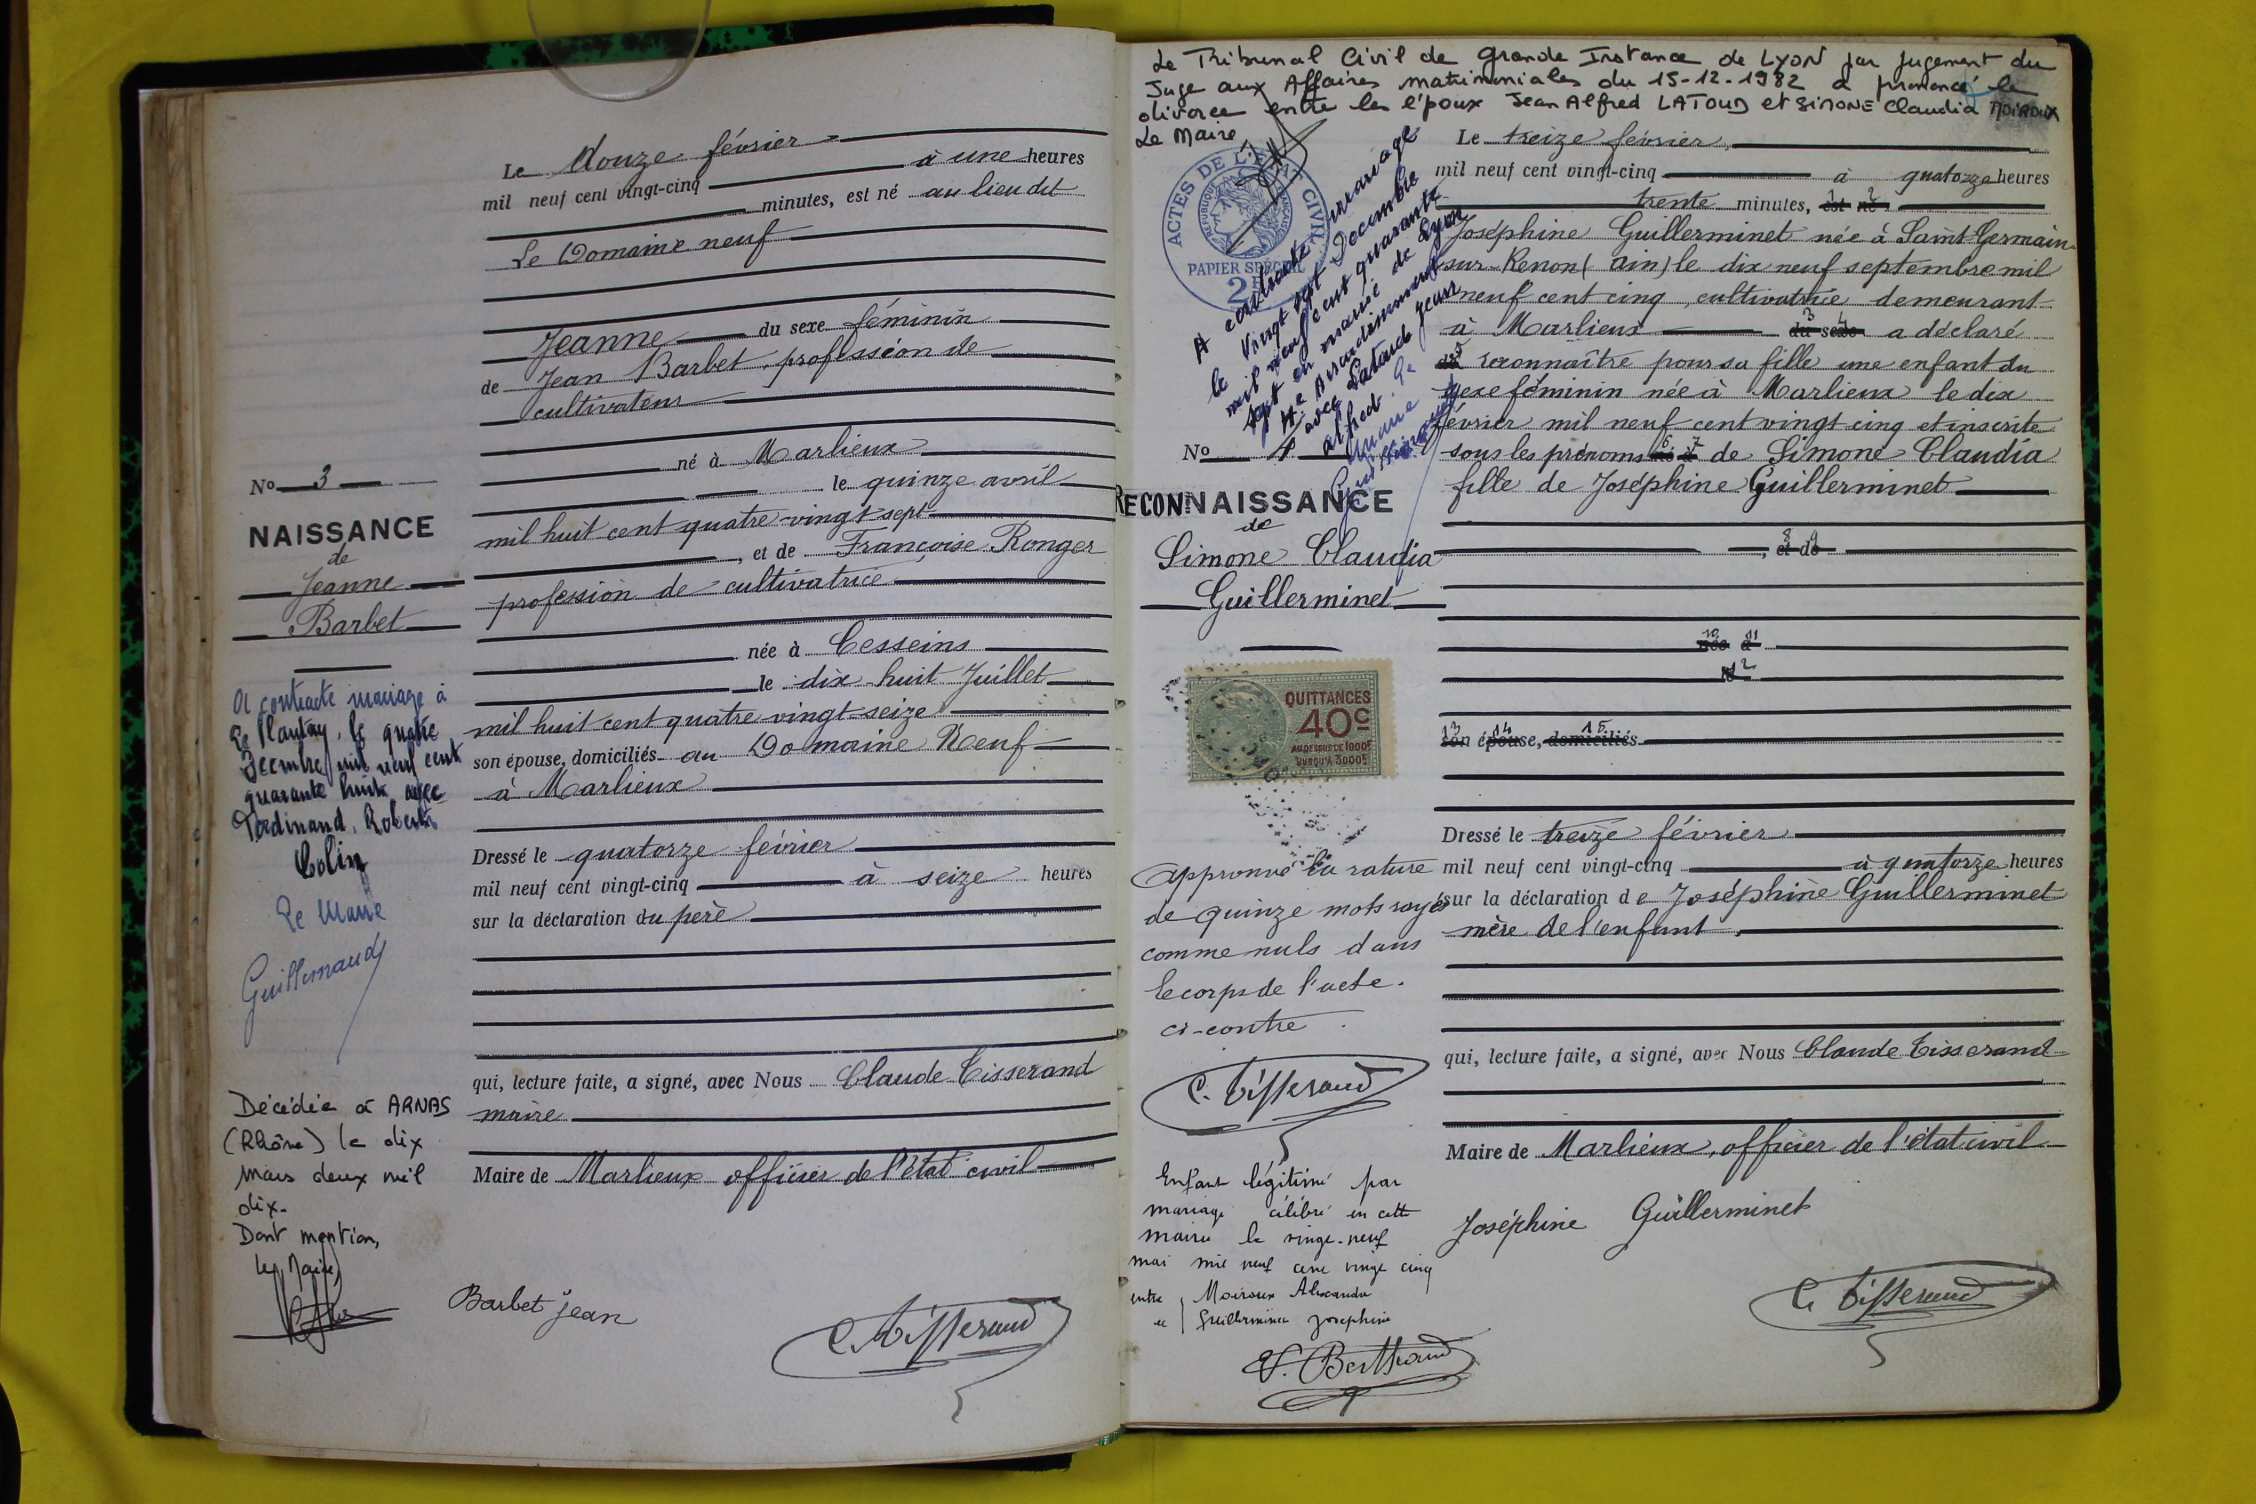 Le douze février
mil neuf cent vingt-cinq à une heures
minutes, est né au lieu dit
Le Domaine neuf
Jeanne du sexe féminin
de Jean Barbet, profession de
cultivateur
né à Marlieux
le quinze avril
mil huit cent quatre-vingt-sept
, et de Françoise Ronger
profession de cultivatrice
née à Cesseins
le dix-huit Juillet
mil huit cent quatre vingt-seize
son épouse, domiciliés au Domaine Neuf
à Marlieux
Dressé le quatorze février
mil neuf cent vingt-cinq à seize heures
sur la déclaration du père
qui, lecture faite, a signé, avec Nous Claude Tisserand
maire
Maire de Marlieux officier de l'état civil
Barbet jean
C. Tisserand
No 3
NAISSANCE
de
Jeanne
Barbet
A contracté mariage à
Le Plantay, le quatre
Decembre mil neuf cent
quarante huit avec
Ferdinand, Robert
Colin
Le Maire
Guillermaud
Décédée à ARNAS
(Rhône) le dix
Mars deux mil
dix.
Dont mention,
Le Maire,
Le Tribunal Civil de Grande Instance de LYON par jugement du
Juge aux Affaires matrimoniales du 15-12-1982 a prononcé le
divorce entre les époux Jean Alfred LATOUD et SIMONE Claudia MOIROUX
Le Maire
ACTES DE L'ÉTAT CIVIL
RÉPUBLIQUE FRANÇAISE
PAPIER SPÉCIAL
2F
A contracté mariage
le vingt sept Decembre
mil neuf cent quarante
sept en mairie de Lyon
4e Arrondissement
avec Latoud Jean
alfred Le
Maire
No 4
RECONNAISSANCE
de
Simone Claudia
Guillerminet
QUITTANCES
40c
AU DESSUS DE 1000F
JUSQU'À 3000F
Approuvé la rature
de quinze mots rayés
comme nuls dans
le corps de l'acte
ci-contre.
C. Tisserand
Enfant légitimé par
mariage célébré en cette
mairie le vingt-neuf
mai mil neuf cent vingt cinq
entre Moiroux Alexandre
et Guillerminet Josephine
Berthaud
Le treize février
mil neuf cent vingt-cinq à quatorze heures
trente minutes, 1 est 2 né
Joséphine Guillerminet née à Saint-Germain
sur-Renon (Ain) le dix neuf septembre mil
neuf cent cinq, cultivatrice demeurant
à Marlieux 3 du 4 sexe a déclaré
5 de reconnaître pour sa fille une enfant du
sexe féminin née à Marlieux le dix
février mil neuf cent vingt cinq et inscrite
sous les prénoms 6 né 7 à de Simone Claudia
fille de Joséphine Guillerminet
, 8 et 9 de
10 née 11 à
12 le
13 son 14 épouse, 15 domiciliés
Dressé le treize février
mil neuf cent vingt-cinq à quatorze heures
sur la déclaration de Joséphine Guillerminet
mère de l'enfant.
qui, lecture faite, a signé, avec Nous Claude Tisserand
Maire de Marlieux, officier de l'état civil
Joséphine Guillerminet
C. Tisserand